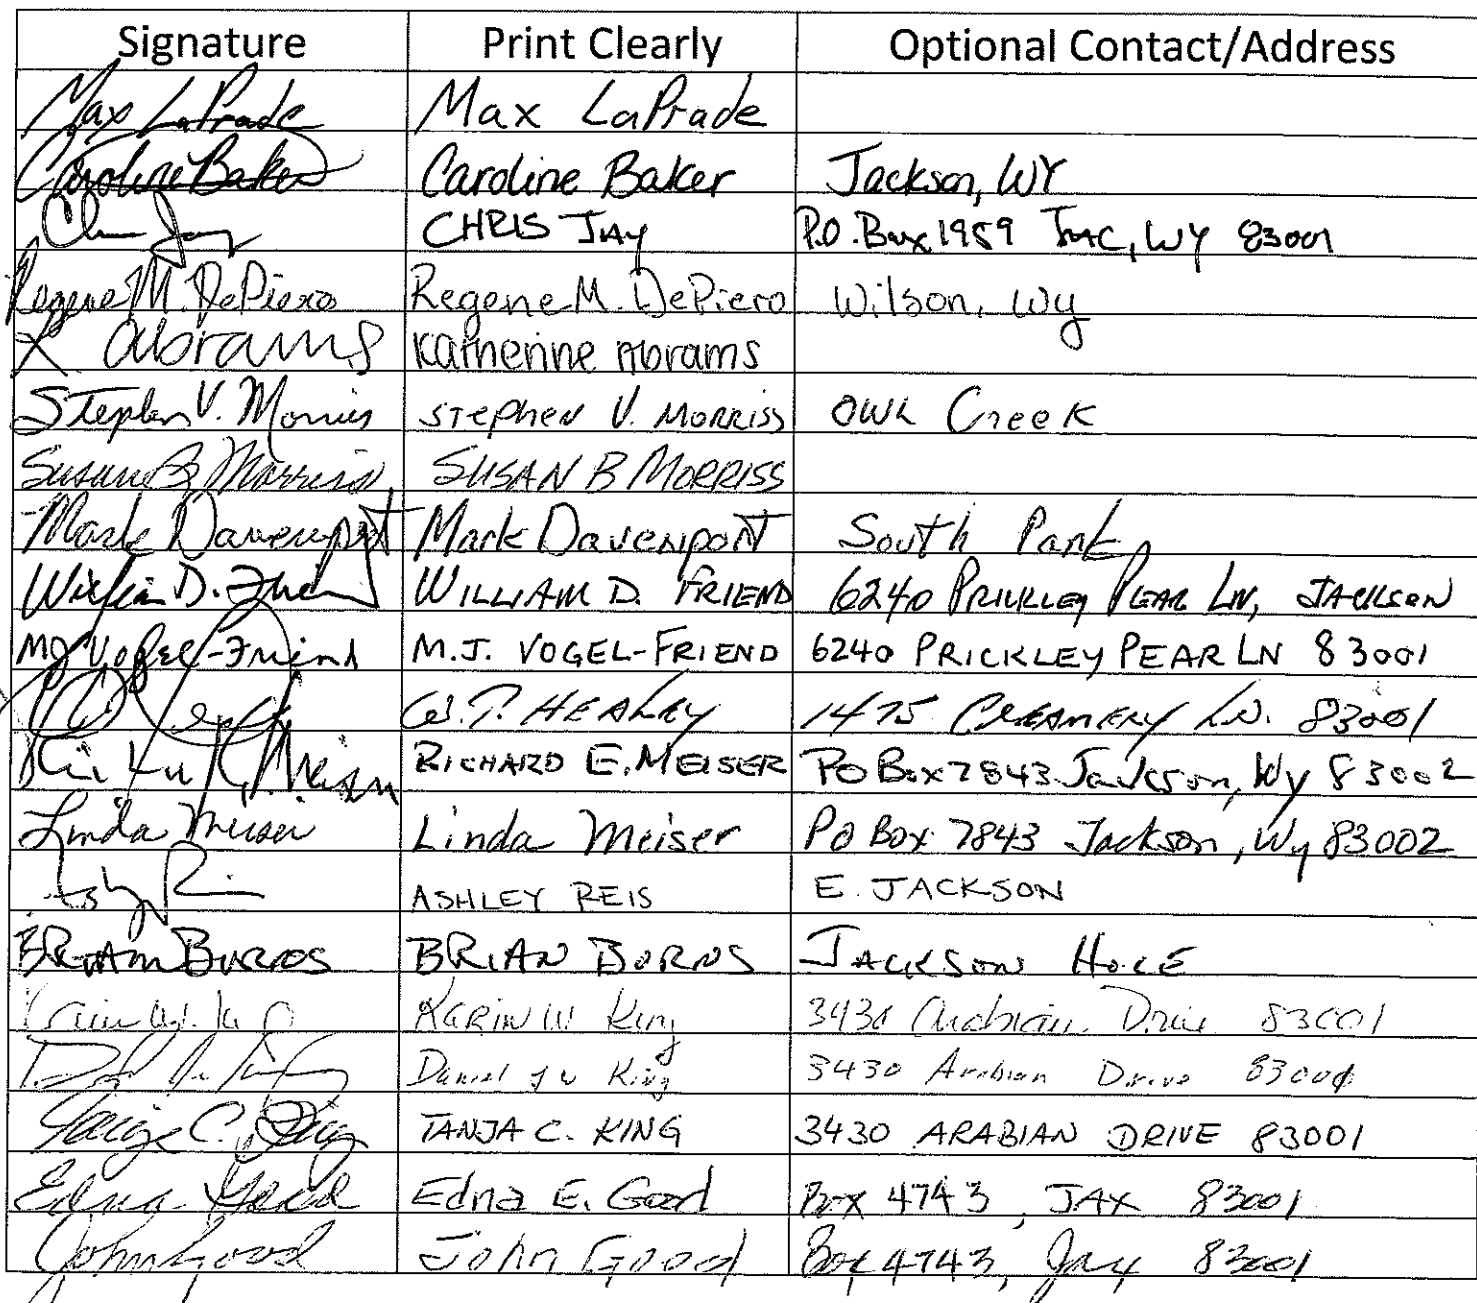 Signature Print Clearly Optional Contact/Address
Max LaPrade Max LaPrade
Caroline Baker Caroline Baker Jackson, WY
CHRIS JAY P.O. Box 1959 JAC, WY 83001
Regene M. DePiero Regene M. DePiero Wilson, Wy
K abrams Katherine Abrams
Stephen V. Morriss Stephen V. Morriss OWL Creek
Susan B Morriss SUSAN B MORRISS
Mark Davenport Mark Davenport South Park
William D. Friend WILLIAM D. FRIEND 6240 PRICKLEY PEAR LN, JACKSON
MJ Vogel-Friend M.J. VOGEL-FRIEND 6240 PRICKLEY PEAR LN 83001
W.T. HEALEY 1475 CREAMERY LN. 83001
RICHARD E. MEISER PO Box 7843 Jackson, Wy 83002
Linda Meiser Linda Meiser PO Box 7843 Jackson, Wy 83002
ASHLEY REIS E. JACKSON
BRIAN BURNS BRIAN BURNS JACKSON HOLE
KARIN W King 3430 Arabian Drive 83001
Daniel J W King 3430 Arabian Drive 83001
TANJA C. KING 3430 ARABIAN DRIVE 83001
Edna Good Edna E. Good Box 4743, JAX 83001
John Good John Good Box 4743, Jax 83001